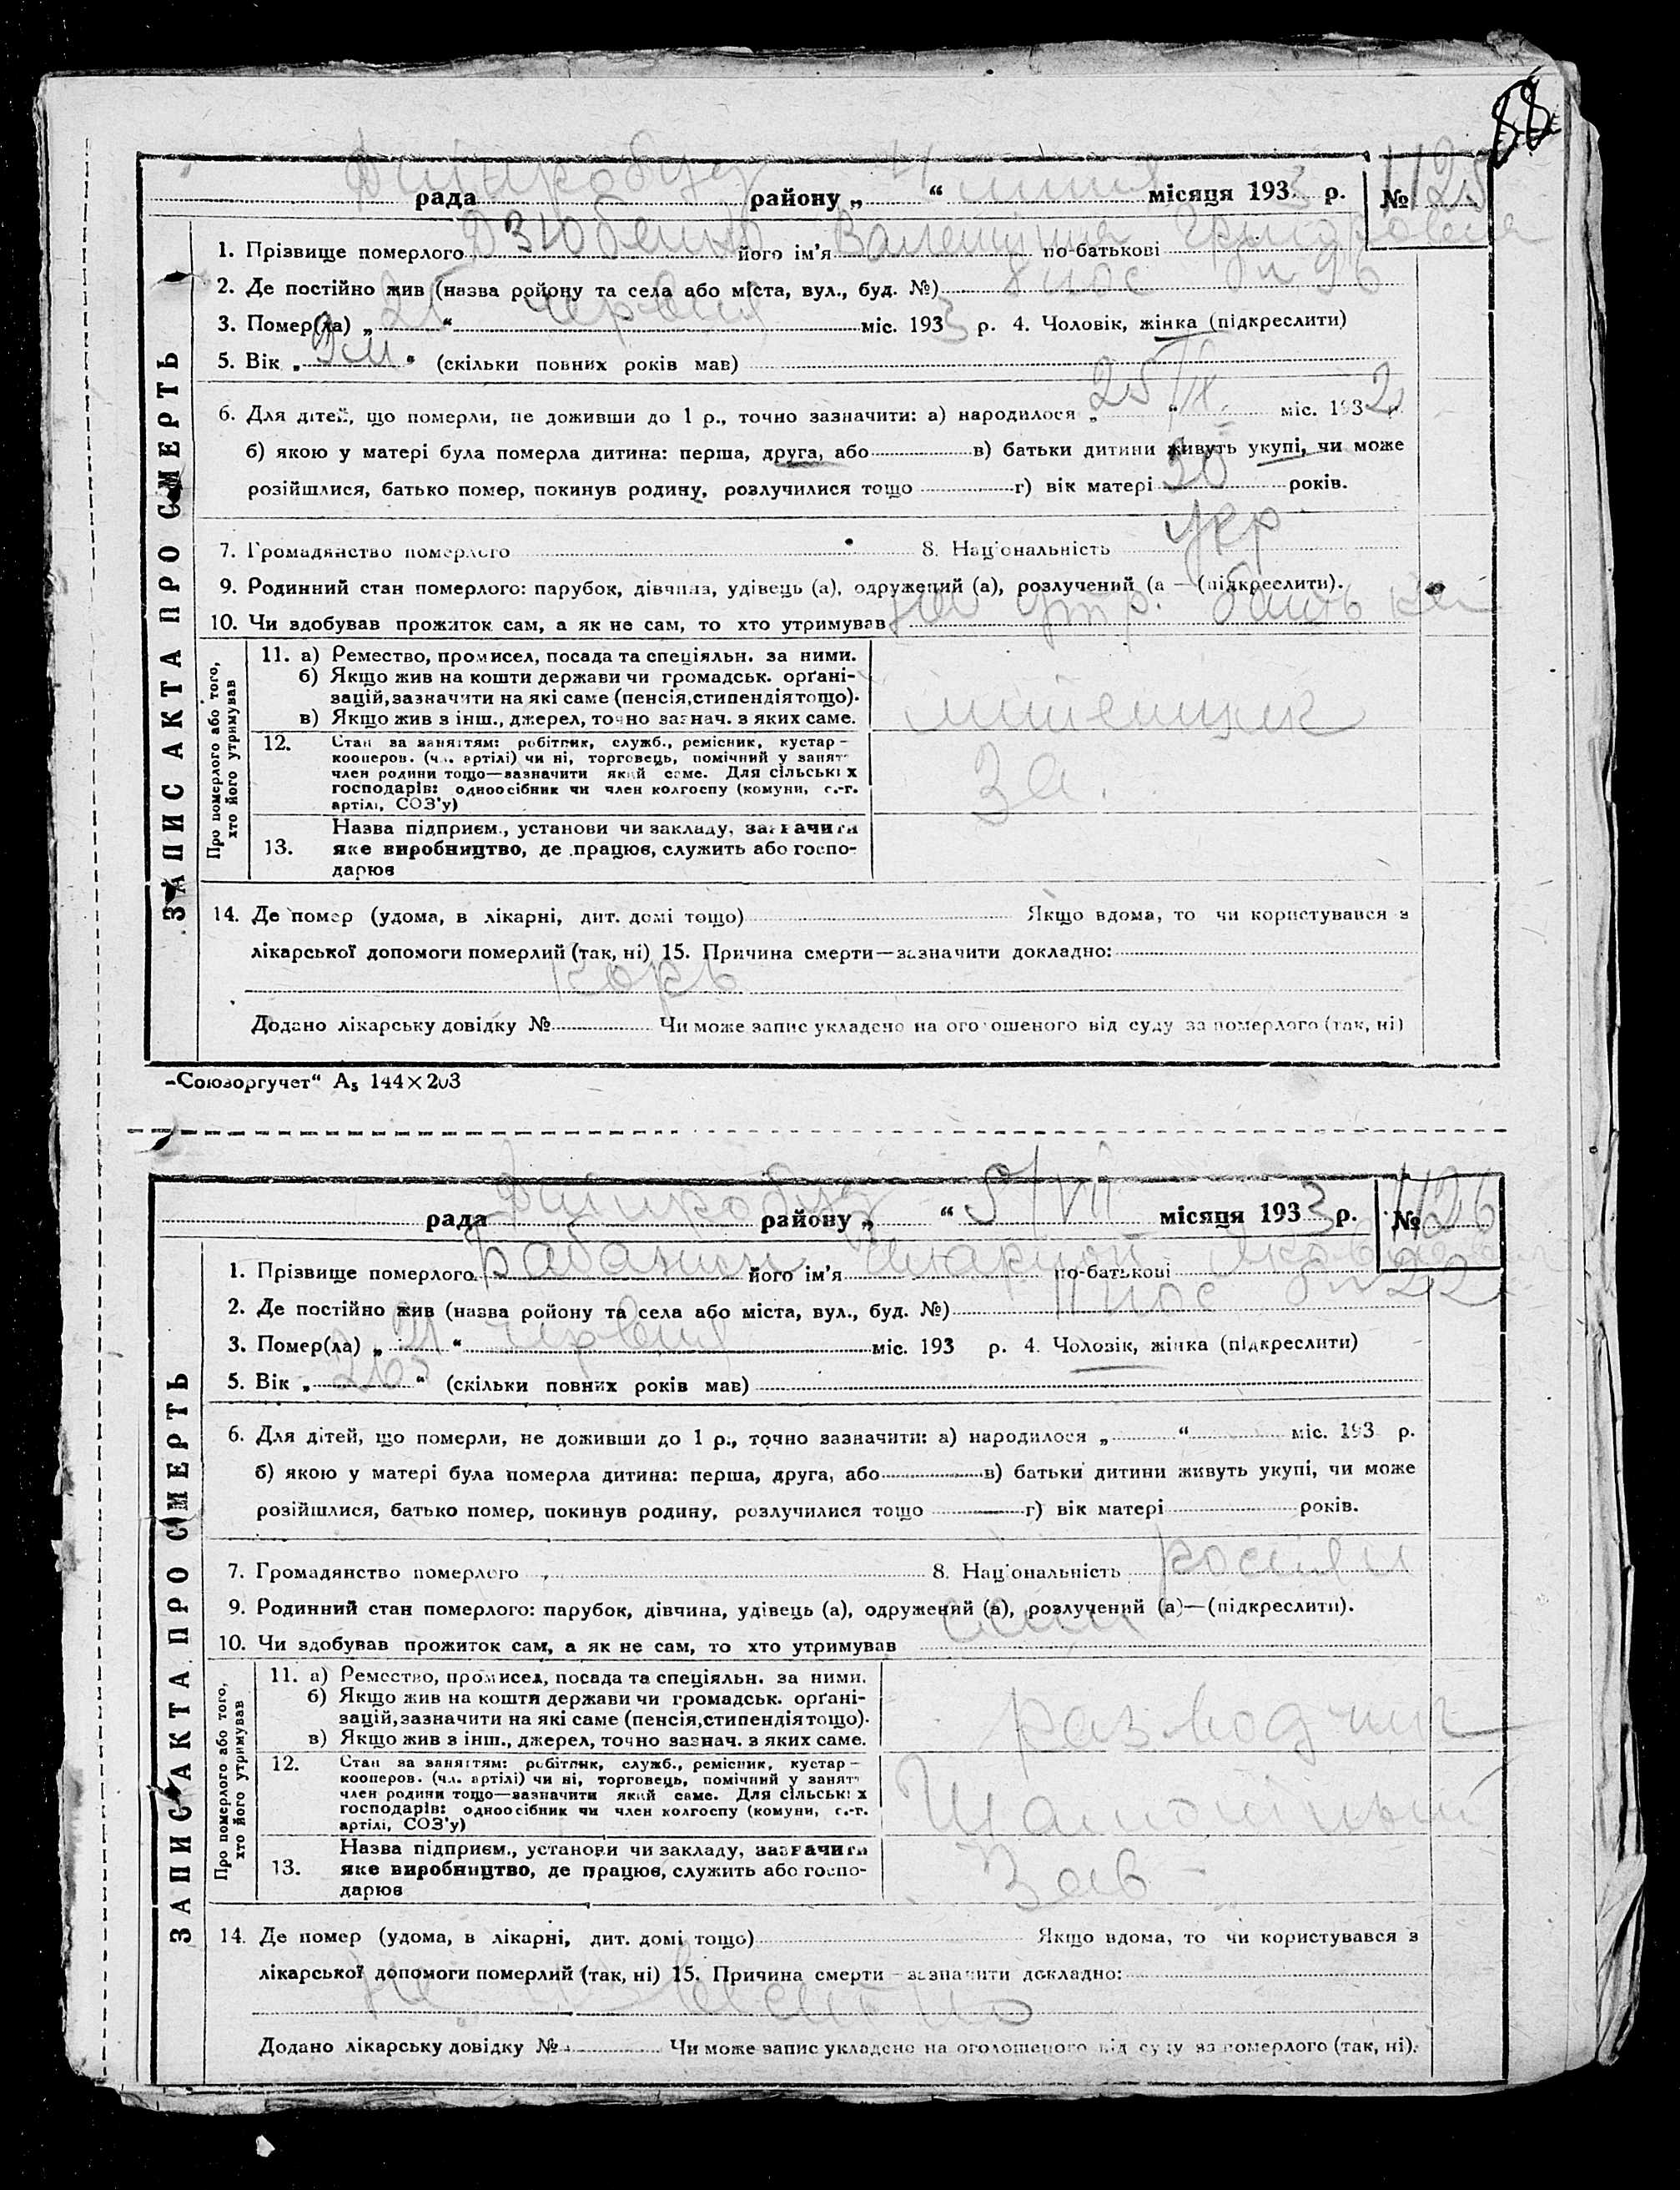 88
Дніпробуд 4 липня 3 1125
рада района „ “ місяця 193 р. №
1. Прізвище померлого Дзюбенко його ім'я Валентина по-батькові
2. Де постійно жив (назва ройону та села або міста, вул., буд. №) пос 96
3. Помер(ла) „ 25 “ червня міс. 1933 р. 4. Чоловік, жінка (підкреслити)
5. Вік „ 9 м “ (скільки повних років мав)
6. Для дітей, що померли, не доживши до 1 р., точно зазначити: а) народилося „ 25/IX “ міс. 1932 р.
б) якою у матері була померла дитина: перша, друга, або в) батьки дитини живуть укупі, чи може
розійшлися, батько помер, покинув родину, розлучилися тощо г) вік матері 30 років.
7. Громадянство померлого 8. Національність укр
9. Родинний стан померлого: парубок, дівчина, удівець (а), одружений (а), розлучений (а — (підкреслити).
10. Чи здобував прожиток сам, а як не сам, то хто утримував на утр. батька
11. а) Ремество, промисел, посада та спеціяльн. за ними.
б) Якщо жив на кошти держави чи громадськ. орґані-
зацій, зазначити на які саме (пенсія, стипендія тощо).
в) Якщо жив з інш., джерел, точно зазнач. з яких саме.
12. Стан за заняттям: робітник, служб., ремісник, кустар —
кооперов. (чл. артілі) чи ні, торговець, помічний у занят
член родини тощо—зазначити який саме. Для сільських
господарів: одноосібник чи член колгоспу (комуни, с.-г.
артілі, СОЗ'у)
За.
Назва підприєм., установи чи закладу, зазначити
13. яке виробництво, де працює, служить або госпо-
дарює
Про померлого або того,
хто його утримував
14. Де помер (удома, в лікарні, дит. домі тощо) Якщо вдома, то чи користувався з
лікарської допомоги померлий (так, ні) 15. Причина смерти—зазначити докладно:
корь
Додано лікарську довідку № Чи може запис укладено на оголошеного від суду за померлого (так, ні)
ЗАПИС АКТА ПРО СМЕРТЬ
„Союзоргучет“ А₅ 144×203
Дніпробуд 5/VII 1126
рада району „ “ місяця 1933 р. №
1. Прізвище померлого його ім'я по-батькові
2. Де постійно жив (назва ройону та села або міста, вул., буд. №) пос 22
3. Помер(ла) „ 21 “ червня міс. 193 р. 4. Чоловік, жінка (підкреслити)
5. Вік „ “ (скільки повних років мав)
6. Для дітей, що померли, не доживши до 1 р., точно зазначити: а) народилося „ “ міс. 193 р.
б) якою у матері була померла дитина: перша, друга, або в) батьки дитини живуть укупі, чи може
розійшлися, батько помер, покинув родину, розлучилися тощо г) вік матері років.
7. Громадянство померлого 8. Національність
9. Родинний стан померлого: парубок, дівчина, удівець (а), одружений (а), розлучений (а)—(підкреслити).
10. Чи здобував прожиток сам, а як не сам, то хто утримував сам
11. а) Ремество, промисел, посада та спеціяльн. за ними.
б) Якщо жив на кошти держави чи громадськ. орґані-
зацій, зазначити на які саме (пенсія, стипендія тощо).
в) Якщо жив з інш., джерел, точно зазнач. з яких саме.
12. Стан за заняттям: робітник, служб., ремісник, кустар —
кооперов. (чл. артілі) чи ні, торговець, помічний у занят
член родини тощо—зазначити який саме. Для сільських
господарів: одноосібник чи член колгоспу (комуни, с.-г.
артілі, СОЗ'у)
Назва підприєм., установи чи закладу, зазначити
13. яке виробництво, де працює, служить або госпо-
дарює
Зав
Про померлого або того,
хто його утримував
14. Де помер (удома, в лікарні, дит. домі тощо) Якщо вдома, то чи користувався з
лікарської допомоги померлий (так, ні) 15. Причина смерти—зазначити докладно:
Додано лікарську довідку № Чи може запис укладено на оголошеного від суду за померлого (так, ні).
ЗАПИС АКТА ПРО СМЕРТЬ